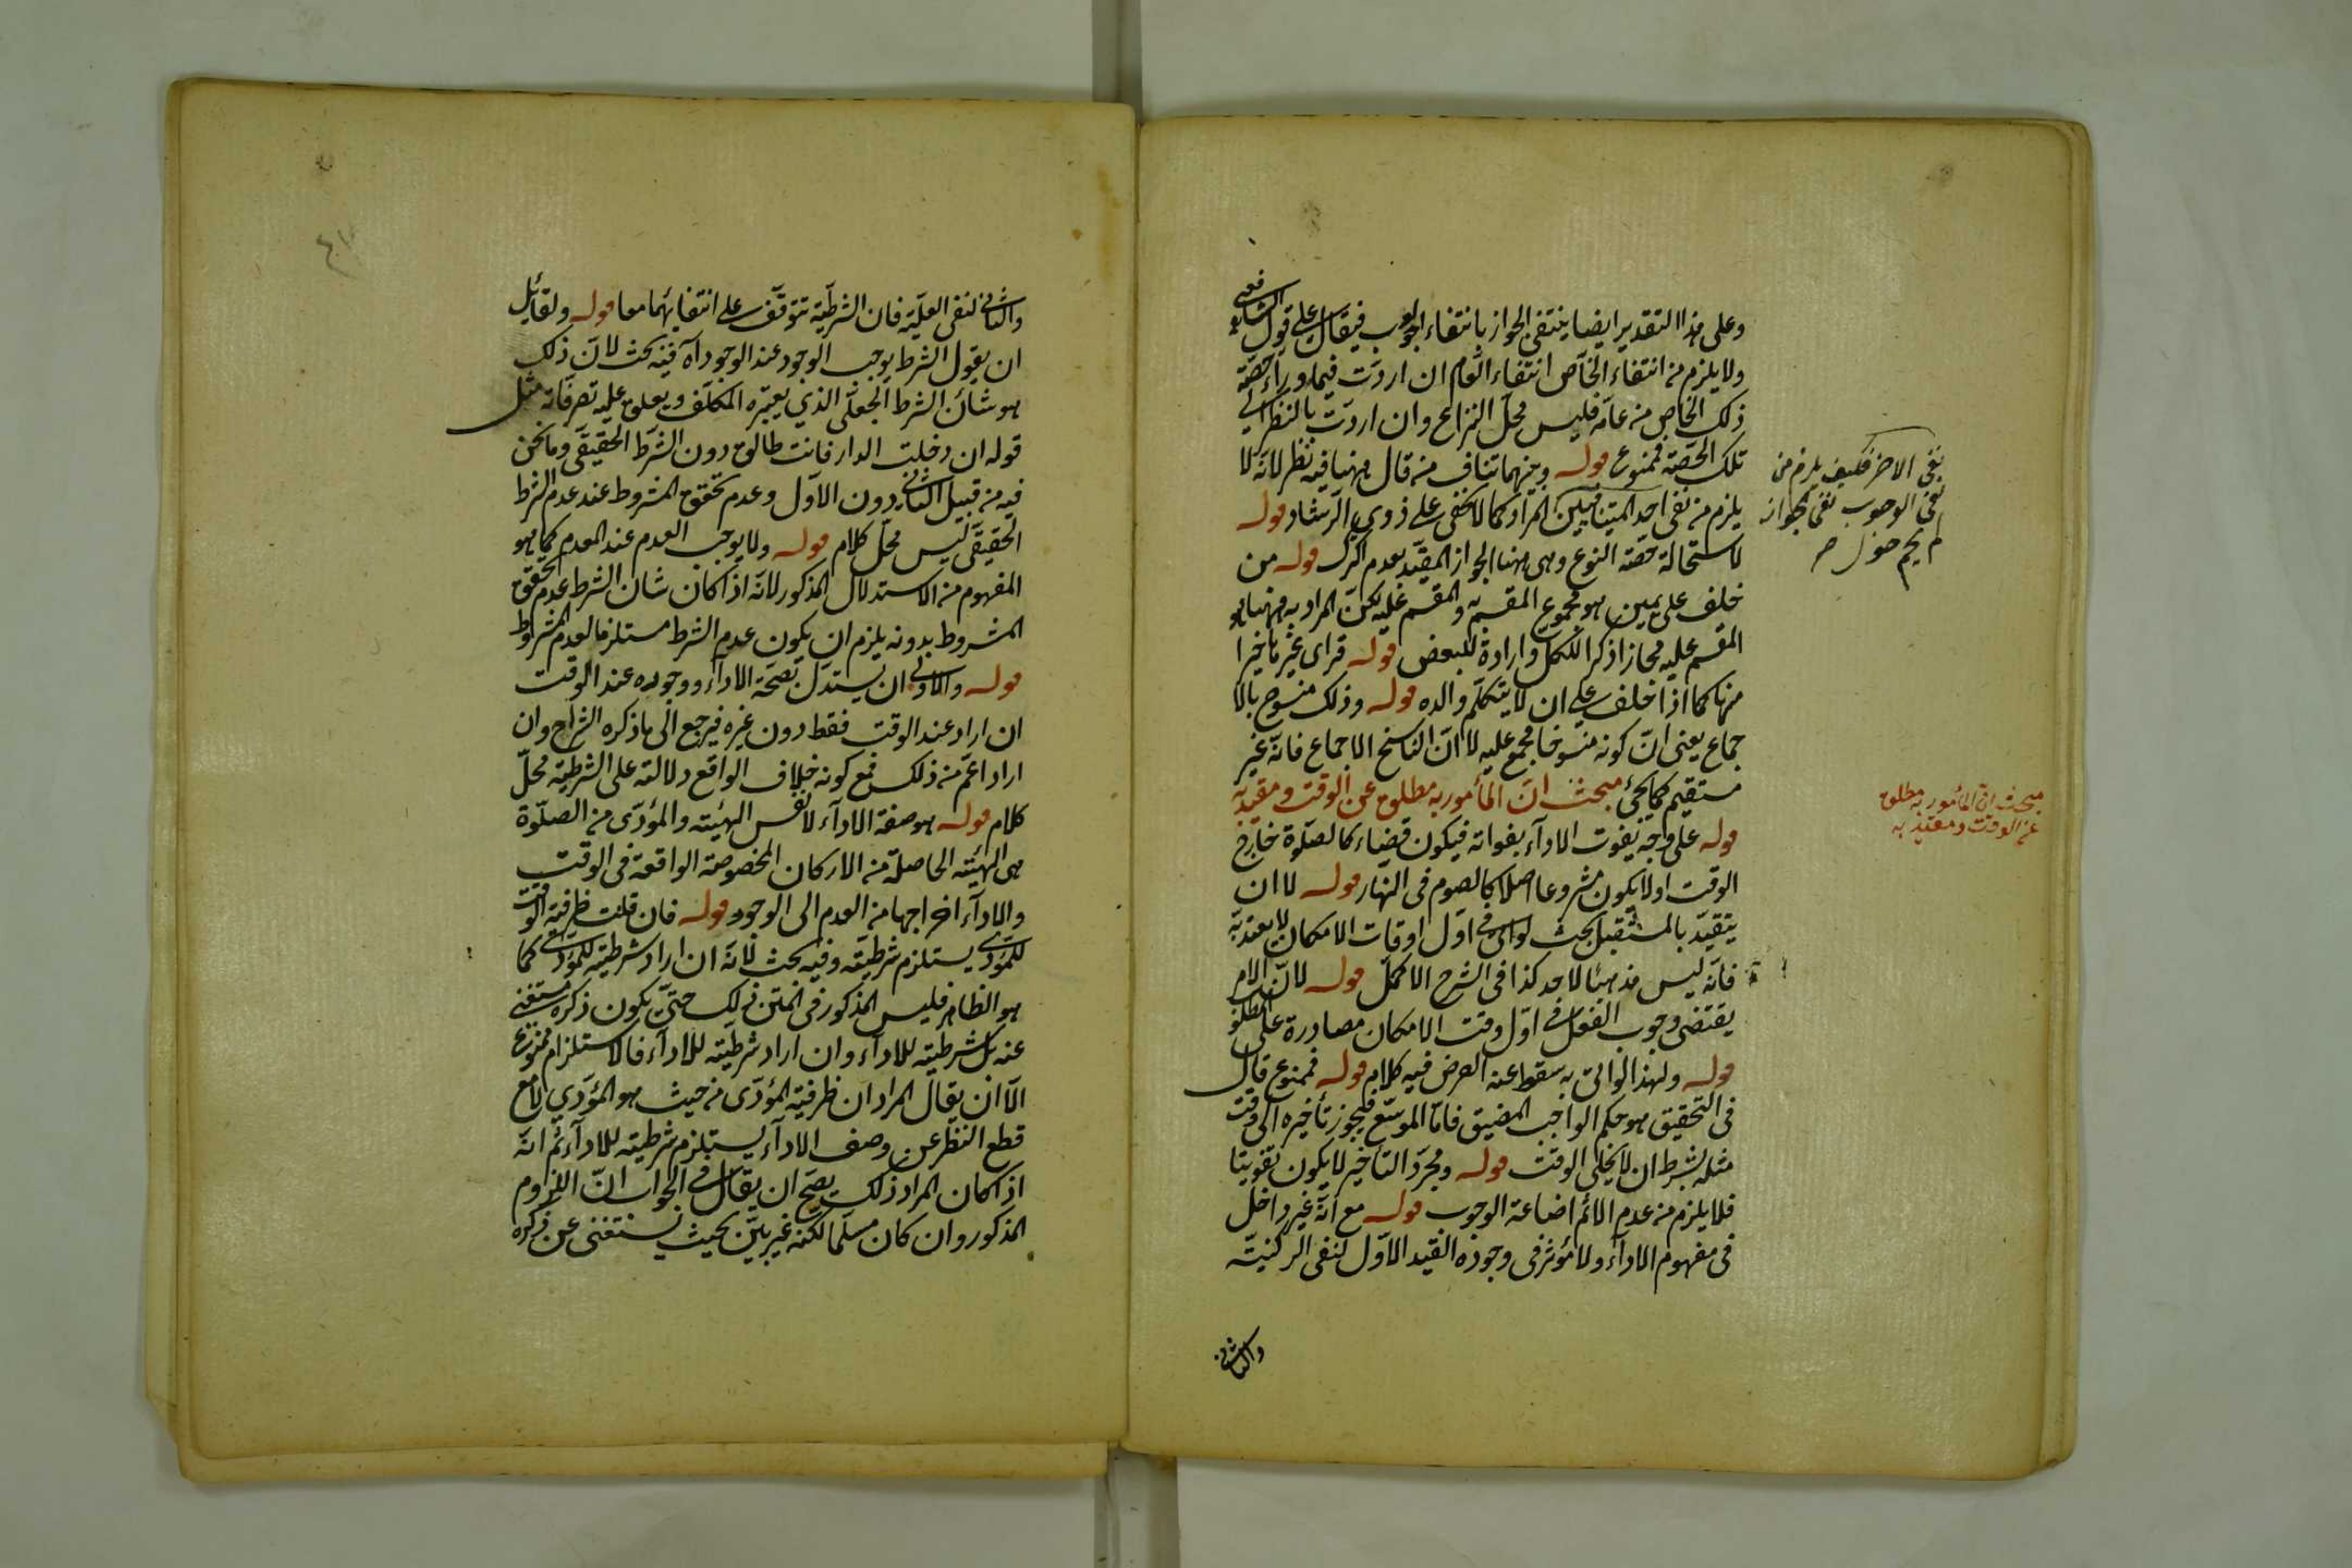 وعلى هذا التقدير ايضا ينتفى الجواز بانتفاء الوجوب فيقال على قول الشافعى
ولا يلزم من انتفاء الخاص انتفاء العام ان اردت فيما وراء حصّة
ذلك الخاص من عامه فليس محل النزاع وان اردت بالنظر الى
تلك الحصّة فممنوع قوله وبينهما تناف من قال ههنا فيه نظر لانه لا
يلزم من نفى احد المتنافيين المراد كما لا يخفى على ذوى الرشاد قوله
لاستحالة حصّة النوع وهى ههنا الجواز المقيد بعدم الترك قوله من
حلف على يمين هو مجموع المقسم به والمقسم عليه لكن المراد به ههنا هو
المقسم عليه مجازا ذكرا للكل وارادة للبعض قوله فراى غيرها خيرا
منها كما اذا حلف على ان لا يتكلم والده قوله وذلك منسوخ بالا
جماع يعنى انّ كونه منسوخا مجمع عليه لا انّ الناسخ الاجماع فانه غير
مستقيم كما يجئ مبحث انّ المأمور به مطلق عن الوقت ومقيد به
قوله على وجه يفوت الاداء بفواته فيكون قضاء كالصلوة خارج
الوقت او لا يكون مشروعا اصلا كالصوم فى النهار قوله لا ان
يتقيد بالمستقبل بحيث لو اتى فى اول اوقات الامكان لا يعتد به
فانه ليس مذهبا لاحد كذا فى الشرح الاكمل قوله لانّ الامر
يقتضى وجوب الفعل فى اوّل وقت الامكان مصادرة على المطلو
قوله ولهذا لو اتى به سقط عنه الفرض فيه كلام قوله فممنوع قال
فى التحقيق هو حكم الواجب المضيق فامّا الموسّع فيجوز تأخيره الى وقت
مثله بشرط ان لا يخلى الوقت قوله ومجرد التاخير لا يكون تفويتا
فلا يلزم من عدم الاثم اضاعة الوجوب قوله مع انه غير داخل
فى مفهوم الاداء ولا مؤثر فى وجوده القيد الاوّل لنفى الركنية
والثانى
نفى الاخر فكيف يلزم من
نفى الوجوب نفى جوازه
مبحث انّ المأمور به مطلق
عن الوقت ومقيد به
والثانى لنفى العلية فان الشرطية تتوقف على انتفائهما معا قوله ولقائل
ان يقول الشرط يوجب الوجود عند الوجود آه فيه بحث لانّ ذلك
هو شان الشرط الجعلى الذي يعتبره المكلف ويعلق عليه تصرفاته مثل
قوله ان دخلت الدار فانت طالق دون الشرط الحقيقى وما نحن
فيه من قبيل الثانى دون الاوّل وعدم تحقق المشروط عند عدم الشرط
الحقيقى ليس محل كلام قوله ولا يوجب العدم عند العدم كما هو
المفهوم من الاستدلال المذكور لانه اذا كان شان الشرط عدم تحقق
المشروط بدونه يلزم ان يكون عدم الشرط مستلزما لعدم المشروط
قوله والاولى ان يستدل بصحة الاداء ووجوده عند الوقت
ان اراد عند الوقت فقط دون غيره فيرجع الى ما ذكره الشراح وان
اراد اعم من ذلك فمع كونه خلاف الواقع دلالته على الشرطية محلّ
كلام قوله هو صفة الاداء لا نفس الهيئة والمؤدى من الصلوة
هى الهيئة الحاصلة من الاركان المخصوصة الواقعة فى الوقت
والاداء اخراجها من العدم الى الوجود قوله فان قلت ظرفية الوقت
للمؤدى يستلزم شرطيته وفيه بحث لانه ان اراد شرطيته للمؤدى كما
هو الظاهر فليس المذكور فى المتن ذلك حتى يكون ذكره مستغنى
عنه بل شرطيته للاداء وان اراد شرطيته للاداء فالاستلزام ممنوع
الّا ان يقال المراد ان ظرفية المؤدى من حيث هو المؤدي لا مع
قطع النظر عن وصف الاداء يستلزم شرطيته للاداء ثم انه
اذا كان المراد ذلك يصح ان يقال فى الجواب انّ اللزوم
المذكور وان كان مسلما لكنه غير بيّن بحيث يستغنى عن ذكره